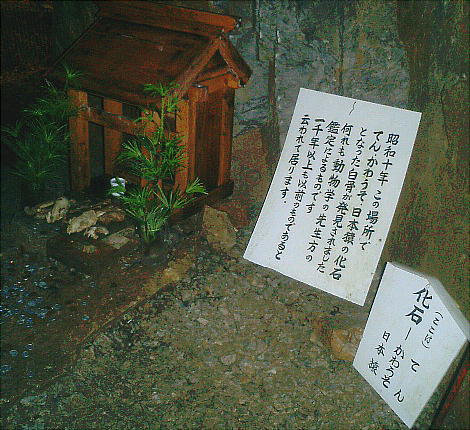 昭和十年 この場所で
てん.かわうそ.日本猿の化石
となった白骨が発見されました
何れも動物学の先生方の
鑑定によるものです
一千年以上も以前のものであると
云われて居ります.
化石
(ここに)
てん
かわうそ
日本猿